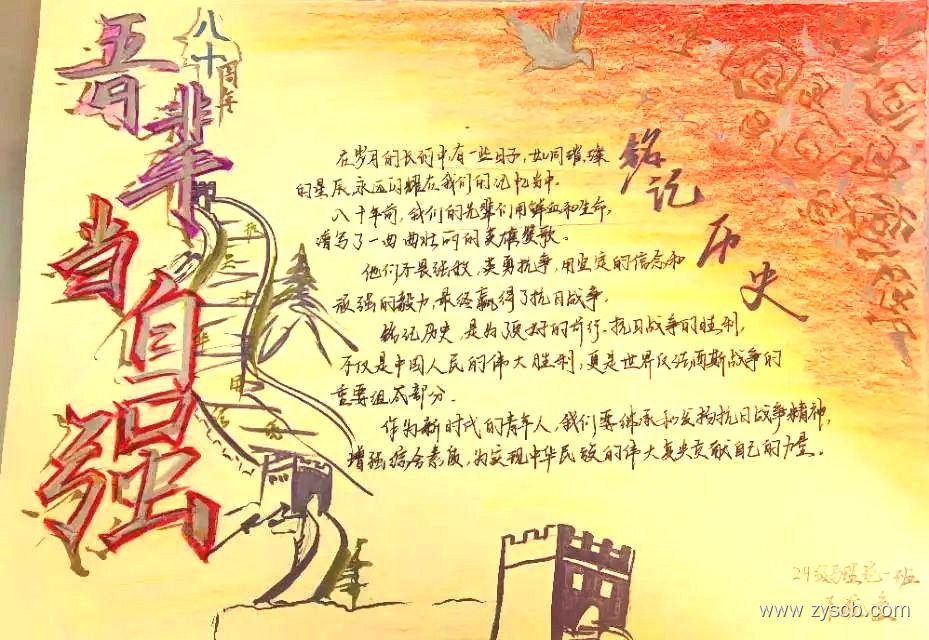 吾辈当自强
八十周年
铭记历史
在岁月的长河中有一些日子，如同璀璨
的星辰永远闪耀在我们的记忆当中.
八十年前，我们的先辈们用鲜血和生命，
谱写了一曲曲壮丽的英雄赞歌。
他们不畏强敌，英勇抗争，用坚定的信念和
顽强的毅力，最终赢得了抗日战争.
铭记历史 是为更好的前行.抗日战争的胜利，
不仅是中国人民的伟大胜利，更是世界反法西斯战争的
重要组成部分.
作为新时代的青年人，我们要继承和发扬抗日战争精神，
增强综合素质，为实现中华民族的伟大复兴贡献自己的力量。
24级
一班
www.zyscb.com